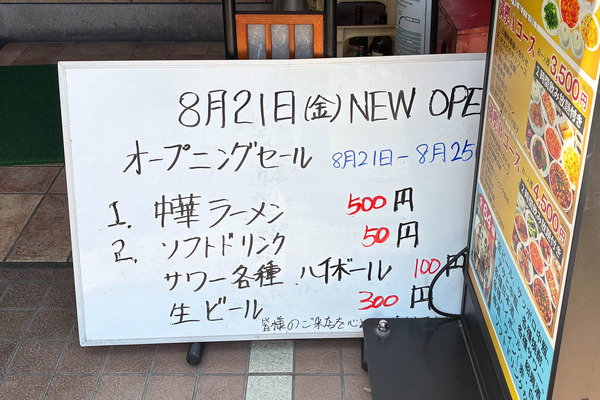 8月21日(金)NEW OPE
オープニングセール 8月21日-8月25
1. 中華ラーメン 500円
2. ソフトドリンク 50円
サワー各種 ハイボール 100円
生ビール 300円
皆様のご来店を心
3,500円
2時間飲み放題付き
4,500円